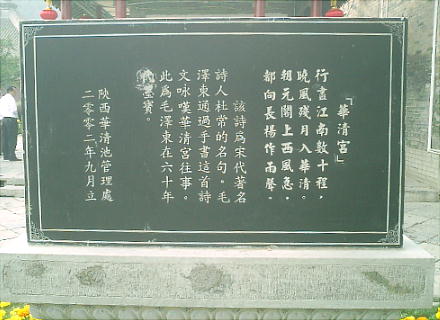 「華清宮」
行盡江南數十程，
曉風殘月入華清。
朝元閣上西風急，
都向長楊作雨聲。
該詩爲宋代著名
詩人杜常的名句。毛
澤東通過手書這首詩
文咏嘆華清宮往事。
此爲毛澤東在六十年
代墨寶。
陝西華清池管理處
二零零二年九月立